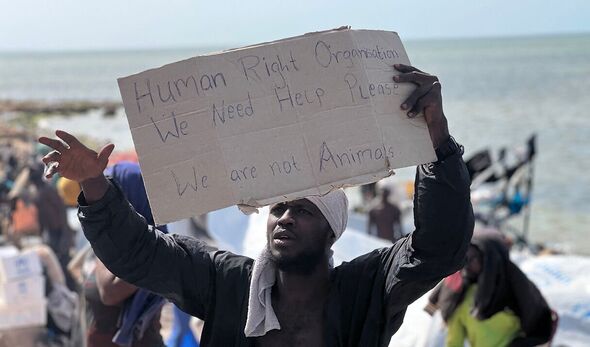 Human Right Organisation
We Need Help Please
We are not Animals